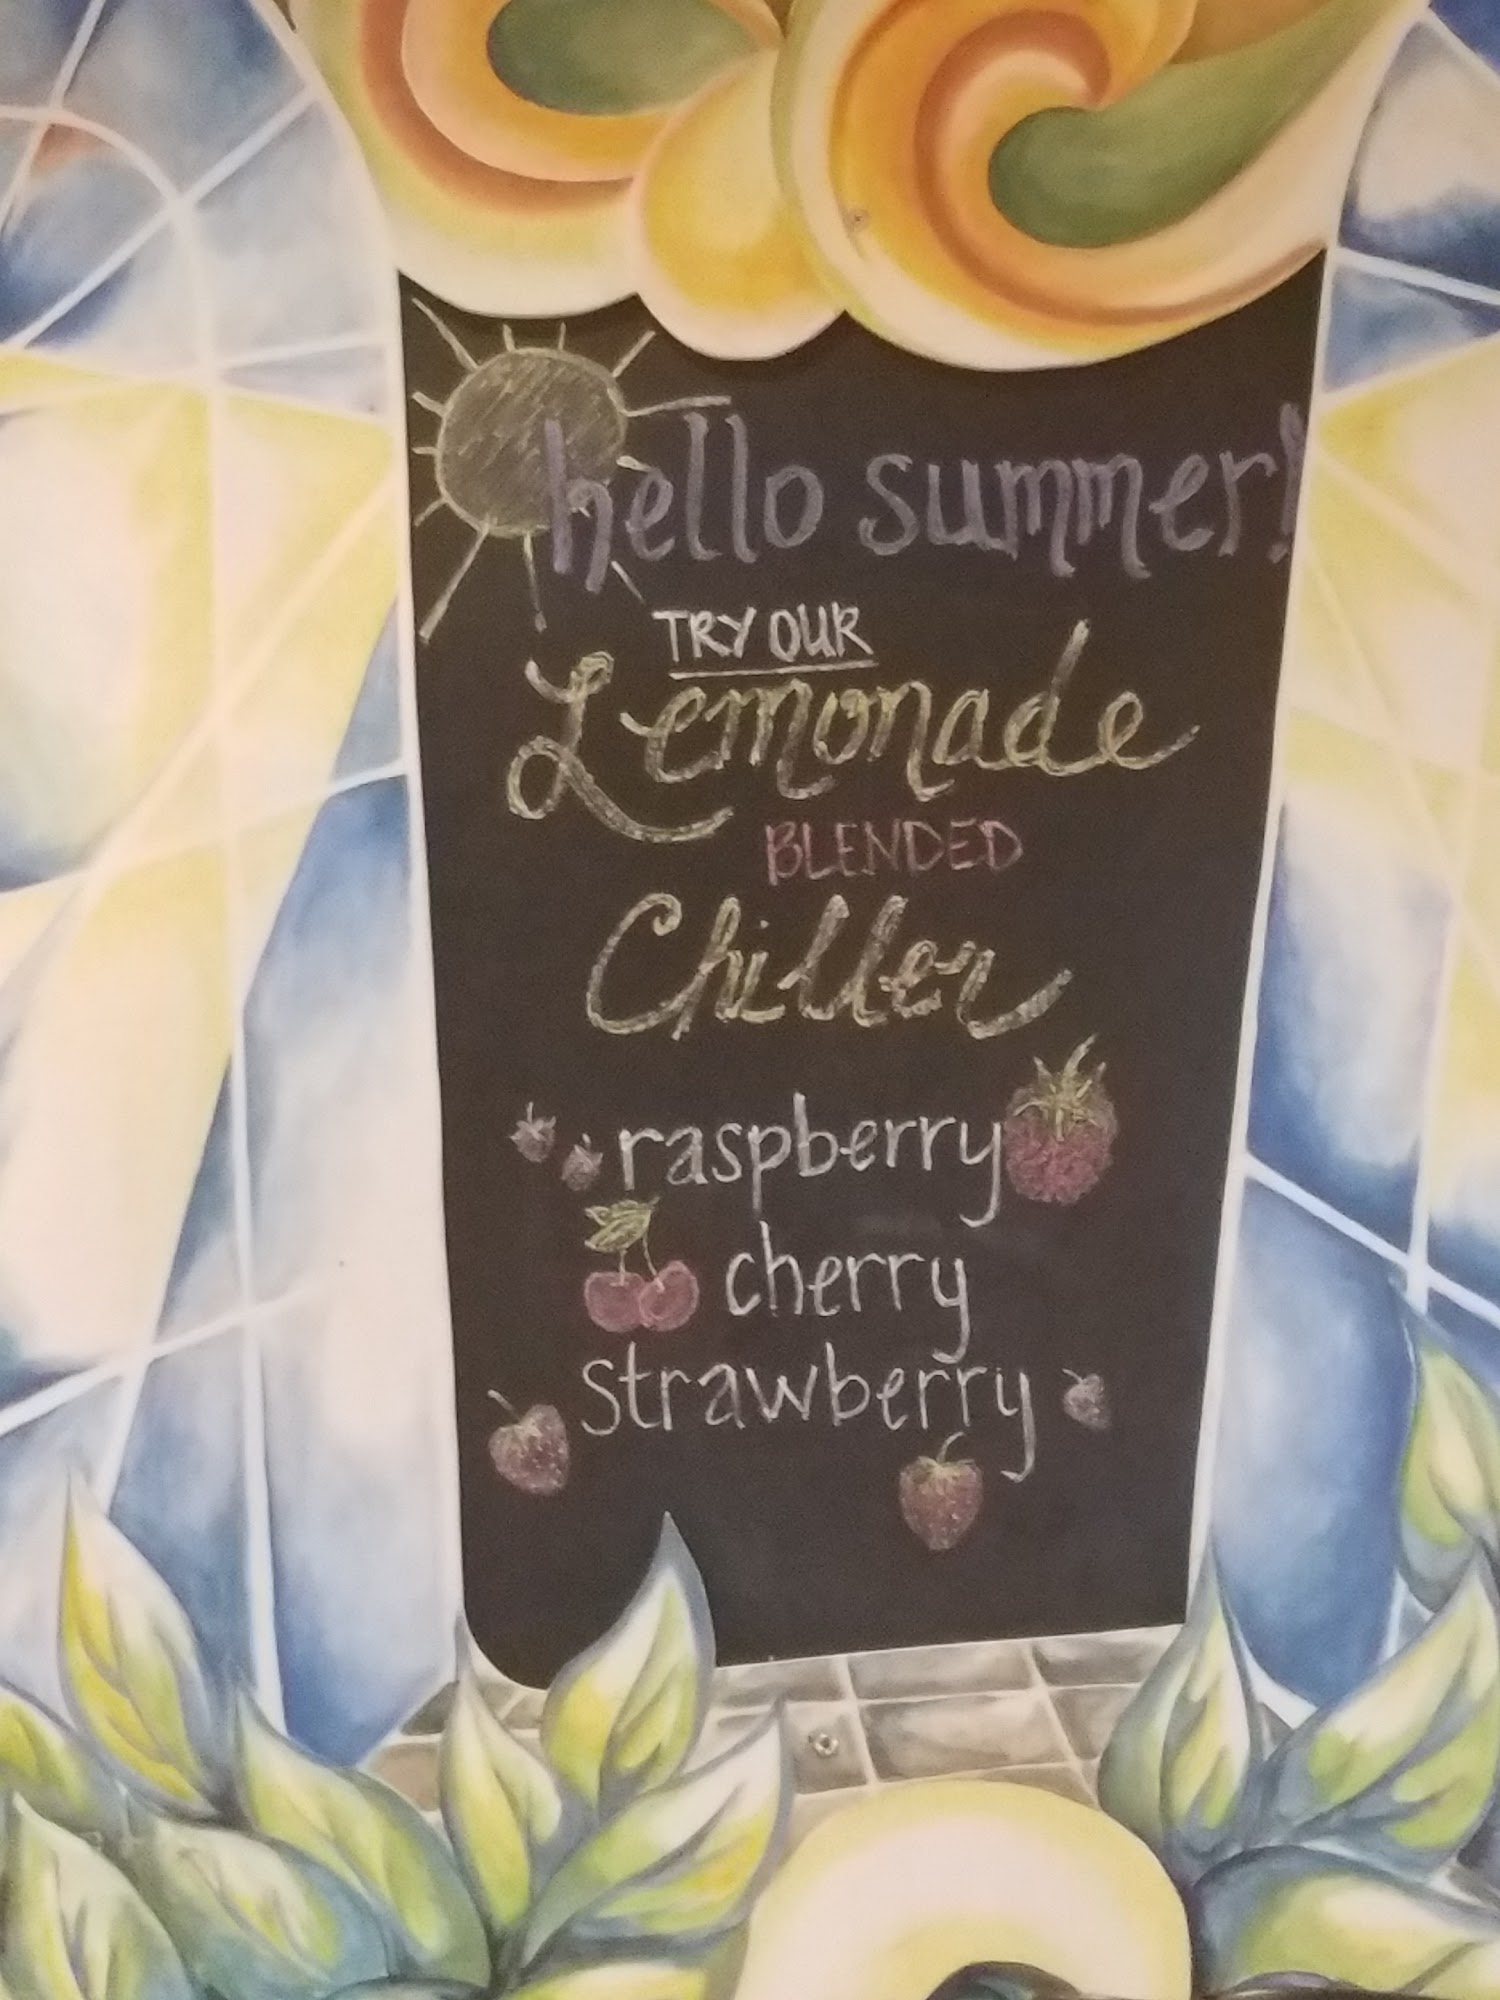 hello summer!
TRY OUR
Lemonade
BLENDED
Chiller
raspberry
cherry
strawberry